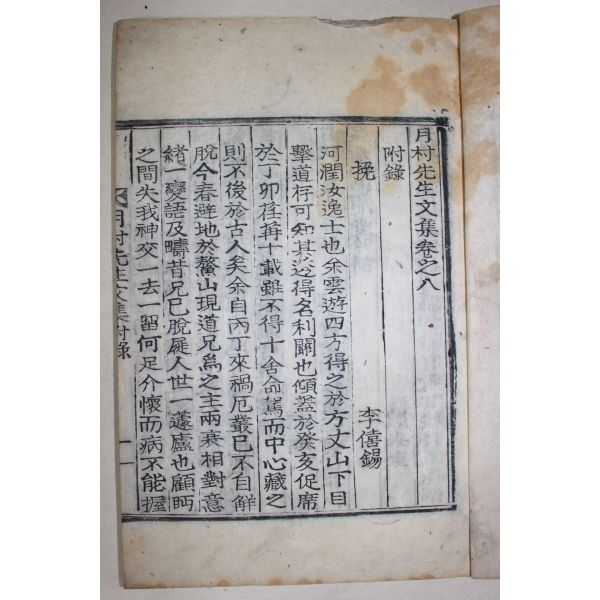 月村先生文集卷之八
附錄
挽 李僖錫
河潤汝逸士也余雲遊四方得之於方丈山下目
擊道存可知其透得名利關也傾盖於癸亥促席
於丁卯荏苒十載雖不得十舍命駕而中心藏之
則不後於古人矣余自丙丁來禍厄叢已不自鮮
脫今春避地於鰲山現道兄爲之主兩衰相對意
緖一變語及疇昔兄已脫屣人世一蘧廬也顧眄
之間失我神交一去一留何足介懷而病不能握
月村先生文集附錄 一